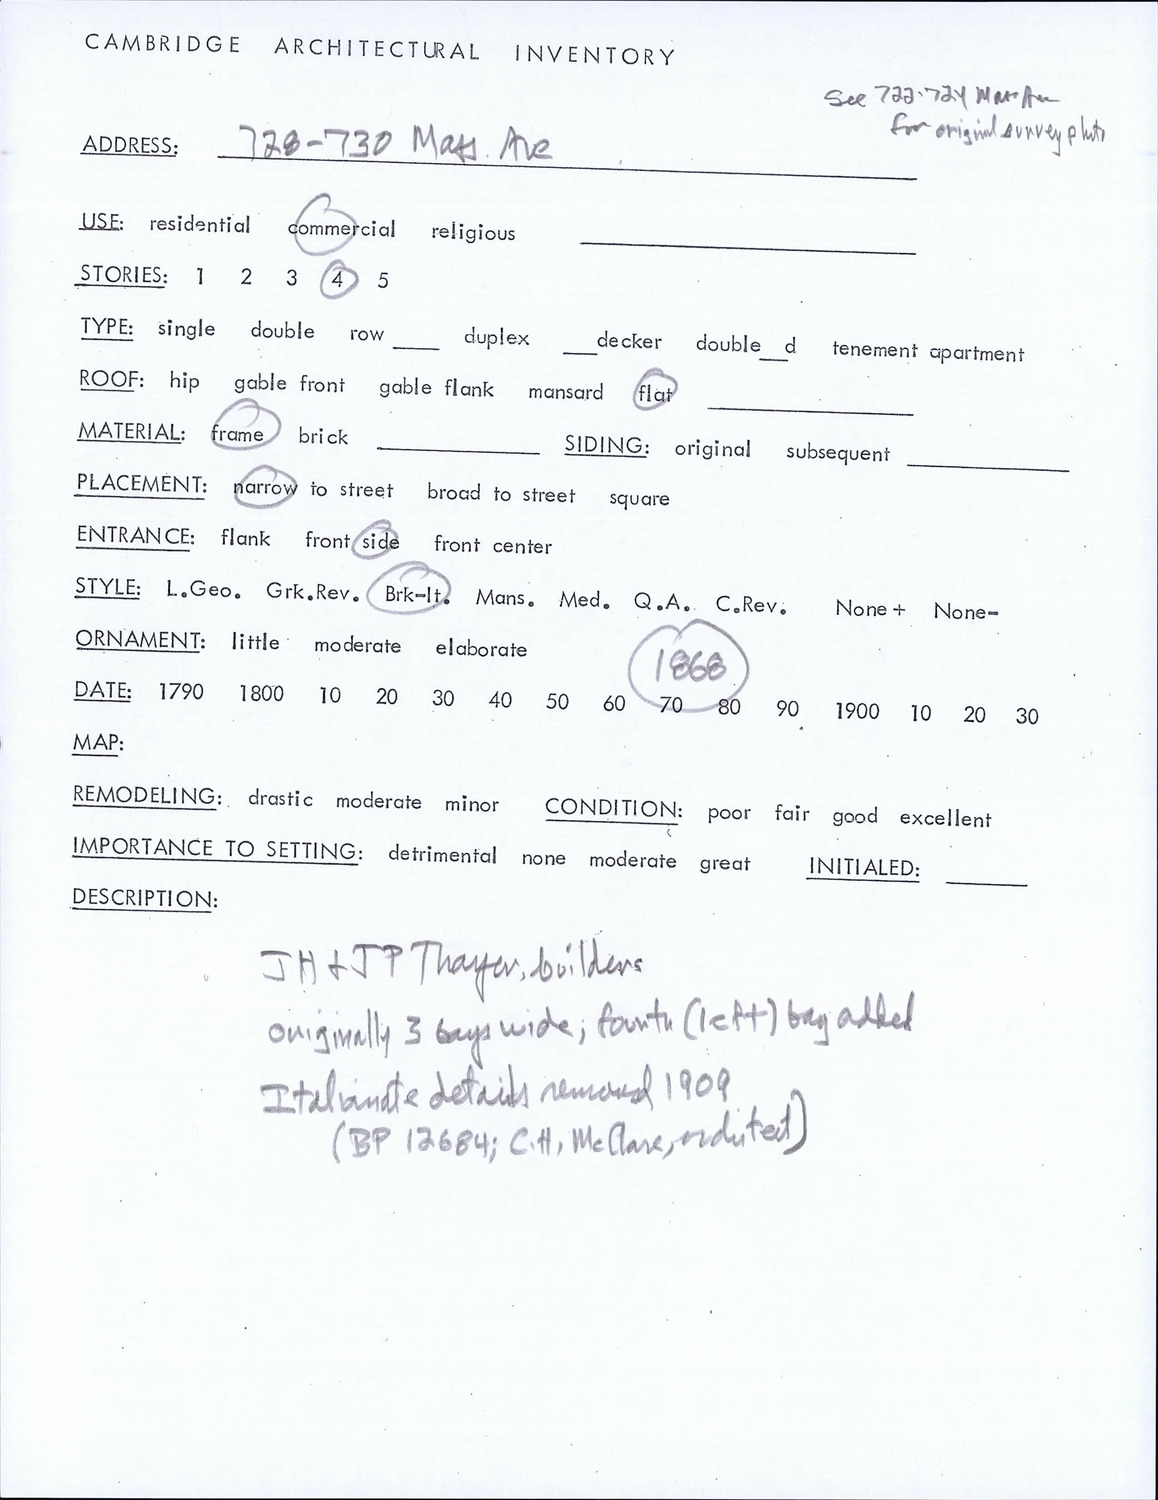 CAMBRIDGE ARCHITECTURAL INVENTORY
See 722-724 Mass Ave
for original survey photo
ADDRESS: 728-730 Mass. Ave
USE: residential commercial religious
STORIES: 1 2 3 4 5
TYPE: single double row ____ duplex ___decker double___d tenement apartment
ROOF: hip gable front gable flank mansard flat
MATERIAL: frame brick SIDING: original subsequent
PLACEMENT: narrow to street broad to street square
ENTRANCE: flank front side front center
STYLE: L.Geo. Grk.Rev. Brk-It. Mans. Med. Q.A. C.Rev. None+ None-
ORNAMENT: little moderate elaborate
1868
DATE: 1790 1800 10 20 30 40 50 60 70 80 90 1900 10 20 30
MAP:
REMODELING: drastic moderate minor CONDITION: poor fair good excellent
IMPORTANCE TO SETTING: detrimental none moderate great INITIALED:
DESCRIPTION:
JH + JP Thayer, builders
originally 3 bays wide; fourth (left) bay added
Italianate details removed 1909
(BP 12684; C.H. McClare, architect)